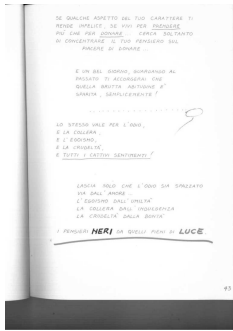 SE QUALCHE ASPETTO DEL TUO CARATTERE TI
RENDE INFELICE, SE VIVI PER PRENDERE
PIÙ CHE PER DONARE... CERCA SOLTANTO
DI CONCENTRARE IL TUO PENSIERO SUL
PIACERE DI DONARE...
E UN BEL GIORNO, GUARDANDO AL
PASSATO TI ACCORGERAI CHE
QUELLA BRUTTA ABITUDINE E'
SPARITA, SEMPLICEMENTE!
LO STESSO VALE PER L'ODIO,
E LA COLLERA,
E L'EGOISMO,
E LA CRUDELTÀ,
E TUTTI I CATTIVI SENTIMENTI!
LASCIA SOLO CHE L'ODIO SIA SPAZZATO
VIA DALL'AMORE...
L'EGOISMO DALL'UMILTÀ
LA COLLERA DALL'INDULGENZA
LA CRUDELTÀ DALLA BONTÀ
I PENSIERI NERI DA QUELLI PIENI DI LUCE
45